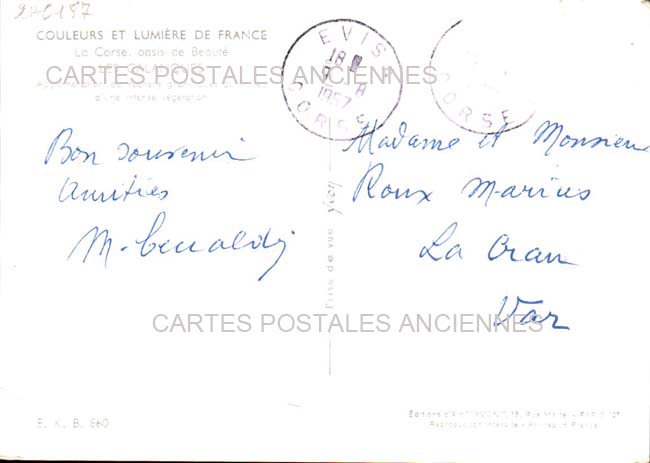 2A0157
COULEURS ET LUMIÈRE DE FRANCE
La Corse, oasis de Beauté
LES CALANQUES
d'une intense végétation
CARTES POSTALES ANCIENNES
EVISA
18
8
1957
CORSE
CORSE
Bon souvenir
Amitiés
M.
Madame et Monsieur
Roux Marius
La Crau
Var
Prise de vue
CARTES POSTALES ANCIENNES
E. K. B. 660
Editions d'Art 15, Rue
Reproduction Interdite - Printed in France